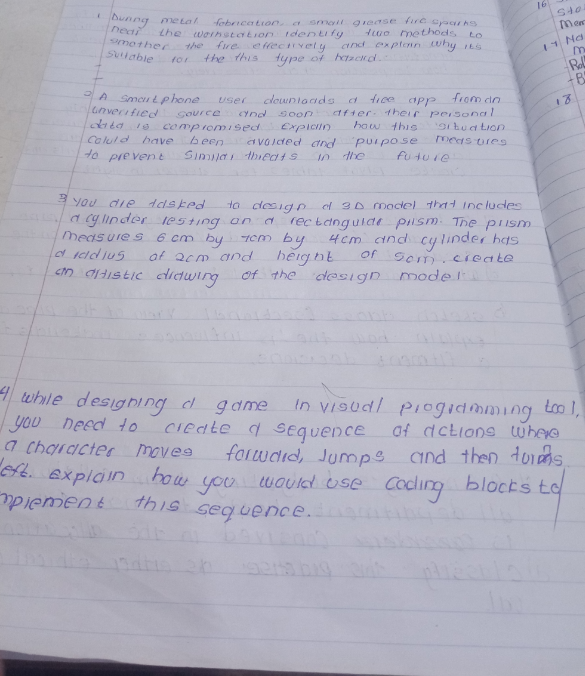 16
1 During metal fabrication, a small grease fire sparks
near the workstation identify two methods to
smother the fire effectively and explain why its
suitable for the this type of hazard.
17
18
2 A smartphone user downloads a free app from an
unverified source and soon after their personal
data is compromised Explain how this situation
could have been avoided and purpose measures
to prevent similar threats in the future
3 you are tasked to design a 3D model that includes
a cylinder resting on a rectangular prism. The prism
measures 6 cm by 7cm by 4cm and cylinder has
a radius of 2cm and height of 5cm. create
an artistic drawing of the design model
4 while designing a game in visual programming tool,
you need to create a sequence of actions where
a character moves forward, Jumps and then turns
left. explain how you would use coding blocks to
implement this sequence.